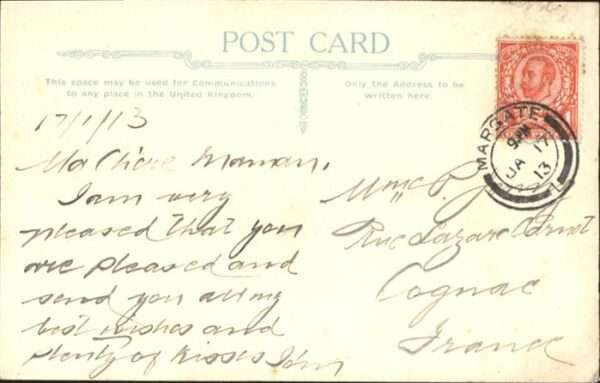 POST CARD
This space may be used for Communications
to any place in the United Kingdom.
Only the Address to be
written here.
17/1/13
Ma Chère Maman,
I am very
pleased that you
are pleased and
send you all my
best wishes and
plenty of kisses
MARGATE
9 PM
JA 17
13
Mme P.
Rue Lazare
Cognac
France